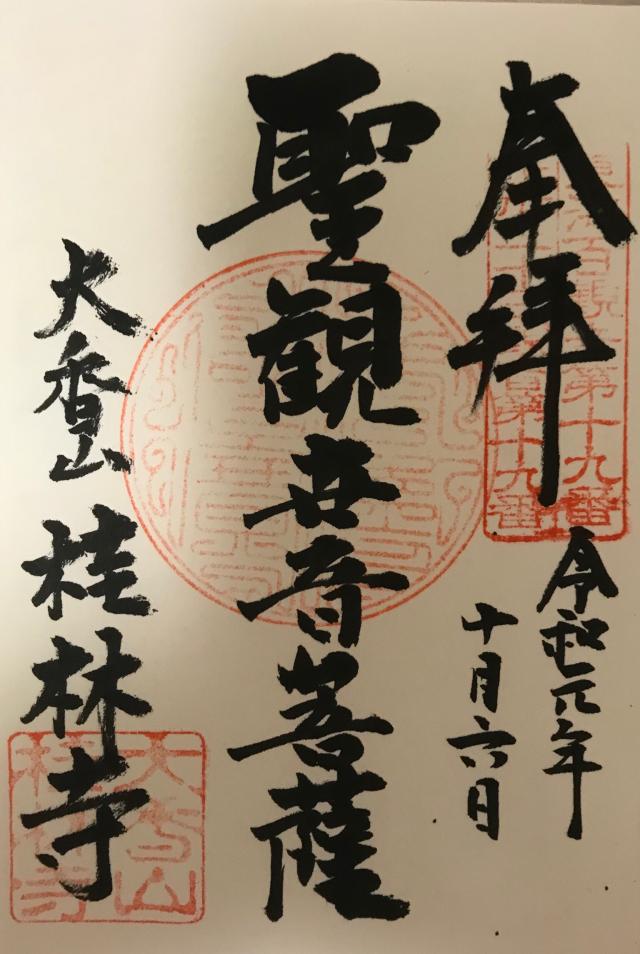 奉拝
百観音第十九番
第十九番
令和元年
十月六日
聖観世音菩薩
大香山 桂林寺
大香山
桂林寺